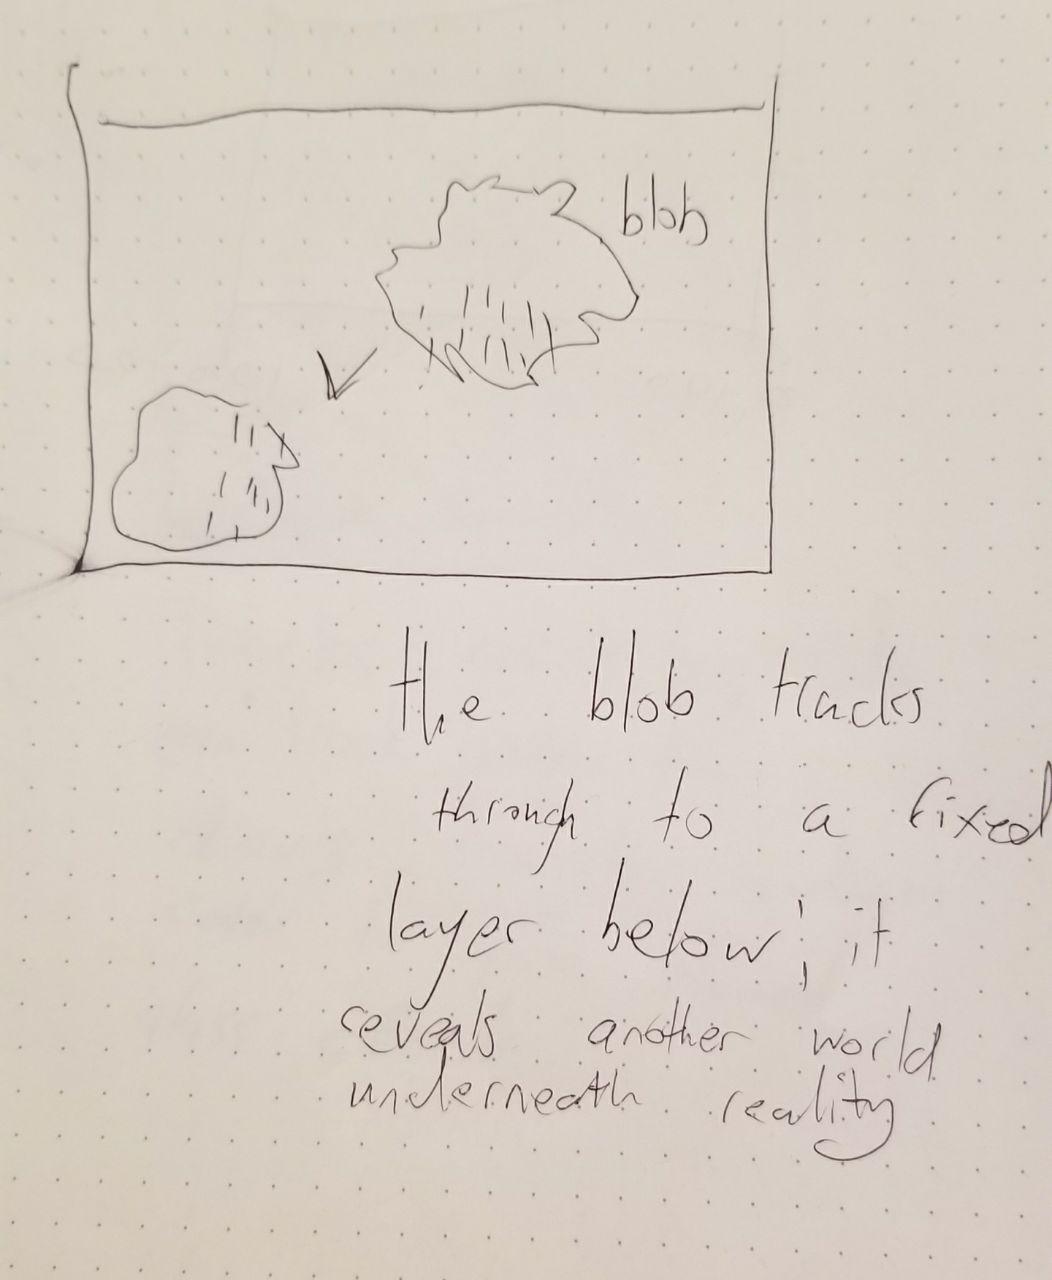 blob
the blob tracks
through to a fixed
layer below; it
reveals another world
underneath reality